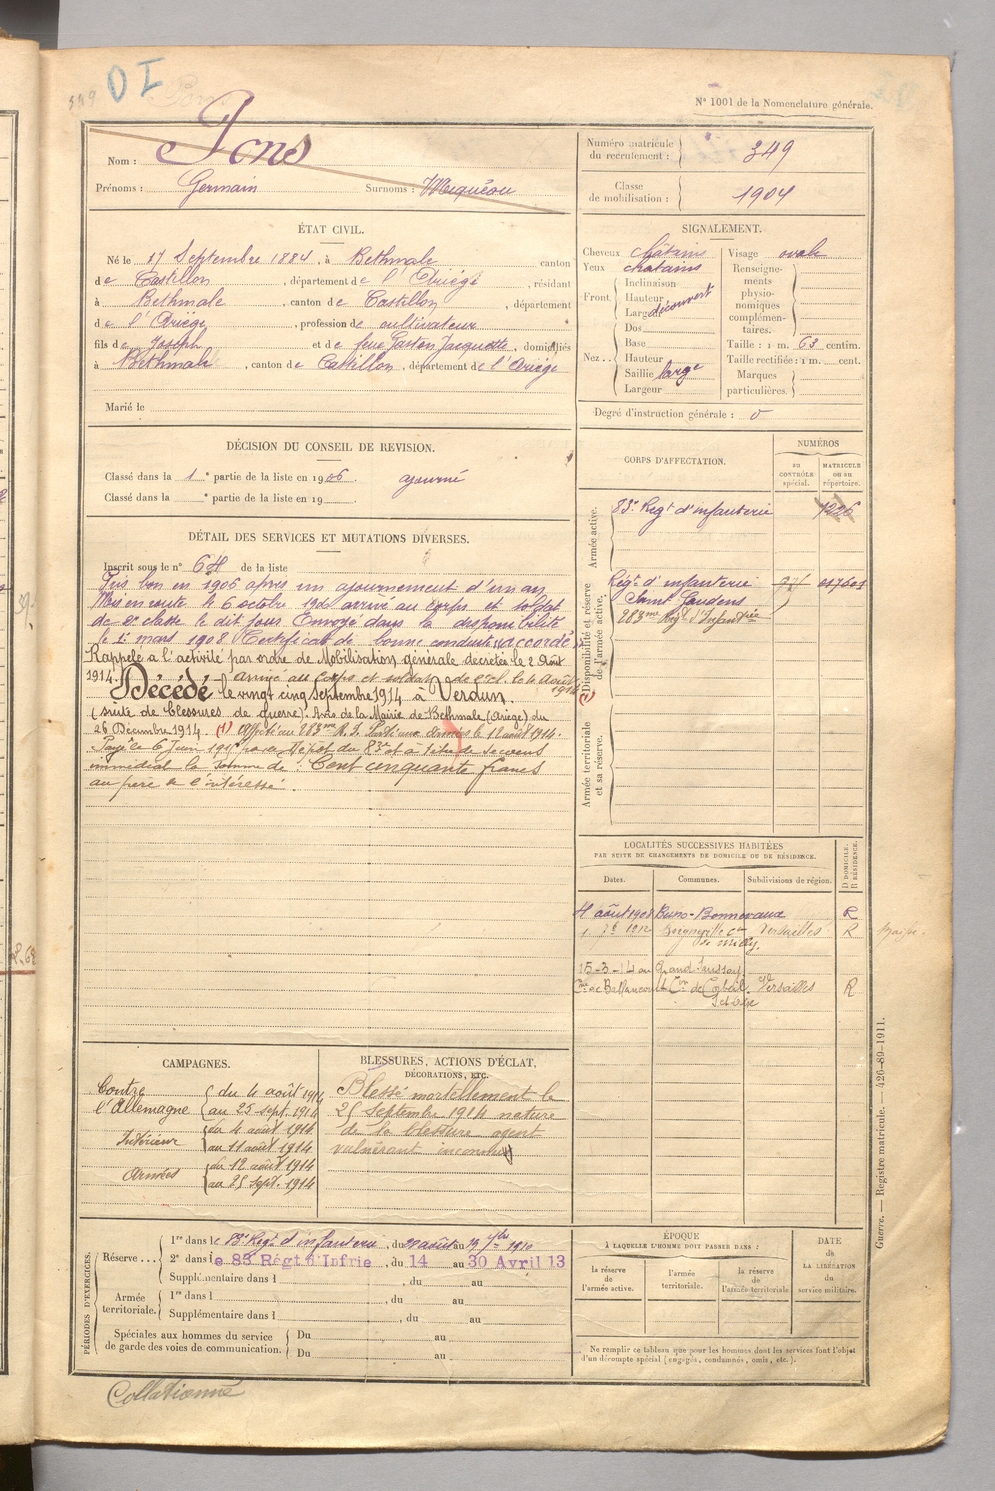 349 DI
N° 1001 de la Nomenclature générale.
Nom : Pons
Prénoms : Germain Surnoms : Miquéou
Numéro matricule du recrutement : 349
Classe de mobilisation : 1904
ÉTAT CIVIL.
Né le 17 Septembre 1884, à Bethmale canton
de Castillon, département de l'Ariège, résidant
à Bethmale, canton de Castillon, département
de l'Ariège, profession de cultivateur
fils de Joseph et de feue Gaston Jacquette, domiciliés
à Bethmale, canton de Castillon, département de l'Ariège
Marié le
SIGNALEMENT.
Cheveux châtains Visage ovale
Yeux chatains
Front Inclinaison
Hauteur
Larg découvert
Nez Dos
Base
Hauteur
Saillie large
Largeur
Renseignements physionomiques complémentaires.
Taille : 1 m. 63 centim.
Taille rectifiée : 1 m. cent.
Marques particulières.
Degré d'instruction générale : 0
DÉCISION DU CONSEIL DE REVISION.
Classé dans la 1e partie de la liste en 1906 ajourné
Classé dans la e partie de la liste en 19
DÉTAIL DES SERVICES ET MUTATIONS DIVERSES.
Inscrit sous le n° 64 de la liste
Pris bon en 1906 après un ajournement d'un an
Mis en route le 6 octobre arrivé au corps et soldat
de 2e classe le dit jour Envoyé dans la disponibilité
le 1er mars 1908 Certificat de bonne conduite "accordé"
Rappelé à l'activité par ordre de Mobilisation générale décrétée le 2 Août
1914. arrivé au corps et soldat de 2e cl. le 4 Août 1914
Décédé le vingt cinq Septembre 1914 à Verdun.
(suite de blessures de guerre). Avis de la Mairie de Bethmale (Ariège) du
26 Décembre 1914. (1) Affecté au 283me R.I. Parti aux armées le 12 août 1914.
Payé le 6 Juin par le Dépôt du 83e et à titre de secours
immédiat la somme de : Cent cinquante francs
au père de l'intéressé.
CORPS D'AFFECTATION.
NUMÉROS
au CONTRÔLE spécial.
MATRICULE ou au répertoire.
Armée active.
83e Régt d'infanterie 1226
Disponibilité et réserve de l'armée active.
Régt d'infanterie 017601
Saint Gaudens
283me Régt d'Infanterie
(1)
Armée territoriale et sa réserve.
LOCALITÉS SUCCESSIVES HABITÉES
PAR SUITE DE CHANGEMENTS DE DOMICILE OU DE RÉSIDENCE.
Dates. Communes. Subdivisions de région. D DOMICILE. R RÉSIDENCE.
4 août 1908 Buno-Bonnevaux R
1912 con de Milly. Versailles R
15-3-14 au Grand Saussay
Cne de Ballancourt Con de Corbeil Versailles R
Set Oise
CAMPAGNES.
Contre l'Allemagne du 4 août 1914
au 25 sept. 1914
Intérieur du 4 août 1914
au 11 août 1914
Armées du 12 août 1914
au 25 Sept. 1914
BLESSURES, ACTIONS D'ÉCLAT,
DÉCORATIONS, ETC.
Blessé mortellement le
25 Septembre 1914 nature
de la blessure agent
vulnérant inconnus
PÉRIODES D'EXERCICES.
Réserve... 1re dans le 83e Régt d'infanterie, du 28 août au 19 7bre 1910
2e dans le 83 Régt d'Infrie, du 14 au 30 Avril 13
Supplémentaire dans l , du au
Armée territoriale. 1re dans l , du au
Supplémentaire dans l , du au
Spéciales aux hommes du service de garde des voies de communication. Du au
Du au
ÉPOQUE
À LAQUELLE L'HOMME DOIT PASSER DANS :
la réserve de l'armée active.
l'armée territoriale.
la réserve de l'armée territoriale
DATE DE LA LIBÉRATION du service militaire.
Ne remplir ce tableau que pour les hommes dont les services font l'objet
d'un décompte spécial (engagés, condamnés, omis, etc.).
Guerre. — Registre matricule. — 426-89-1911.
Collationné